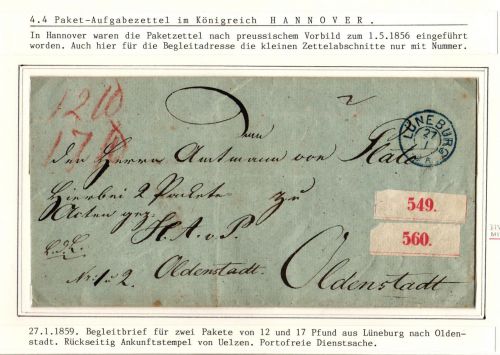 4.4 Paket-Aufgabezettel im Königreich HANNOVER.
In Hannover waren die Paketzettel nach preussischem Vorbild zum 1.5.1856 eingeführt
worden. Auch hier für die Begleitadresse die kleinen Zettelabschnitte nur mit Nummer.
12
17
LÜNEBURG
27
1
Dem
den Herrn Amtmann von
Hierbei 2 Packete
zu
Acten gez.
549.
H. A. v. P
560.
Oldenstadt.
Oldenstadt.
No: 1 u 2.
27.1.1859. Begleitbrief für zwei Pakete von 12 und 17 Pfund aus Lüneburg nach Olden-
stadt. Rückseitig Ankunftstempel von Uelzen. Portofreie Dienstsache.